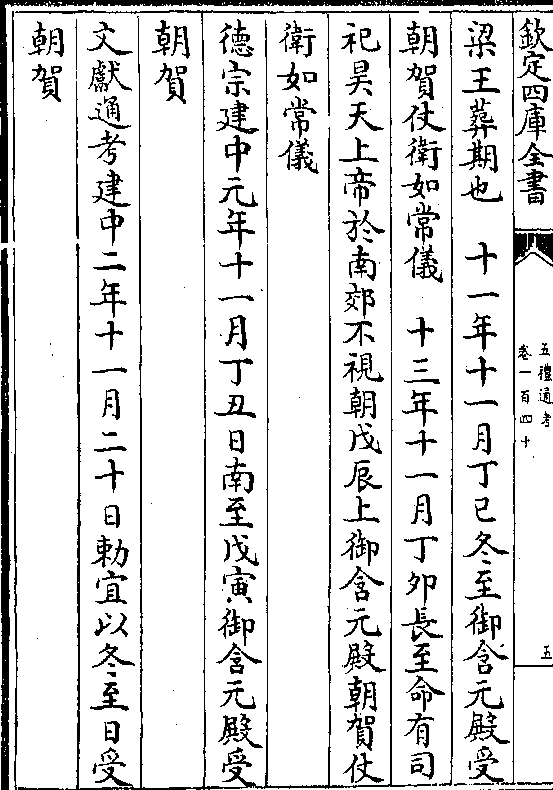 欽定四庫全書
五禮通考
卷一百四十
五
梁王葬期也　十一年十一月丁巳冬至御含元殿受
朝賀仗衛如常儀　十三年十一月丁夘長至命有司
祀昊天上帝於南郊不視朝戊辰上御含元殿朝賀仗
衛如常儀
德宗建中元年十一月丁丑日南至戊寅御含元殿受
朝賀
文獻通考建中二年十一月二十日勅宜以冬至日受
朝賀